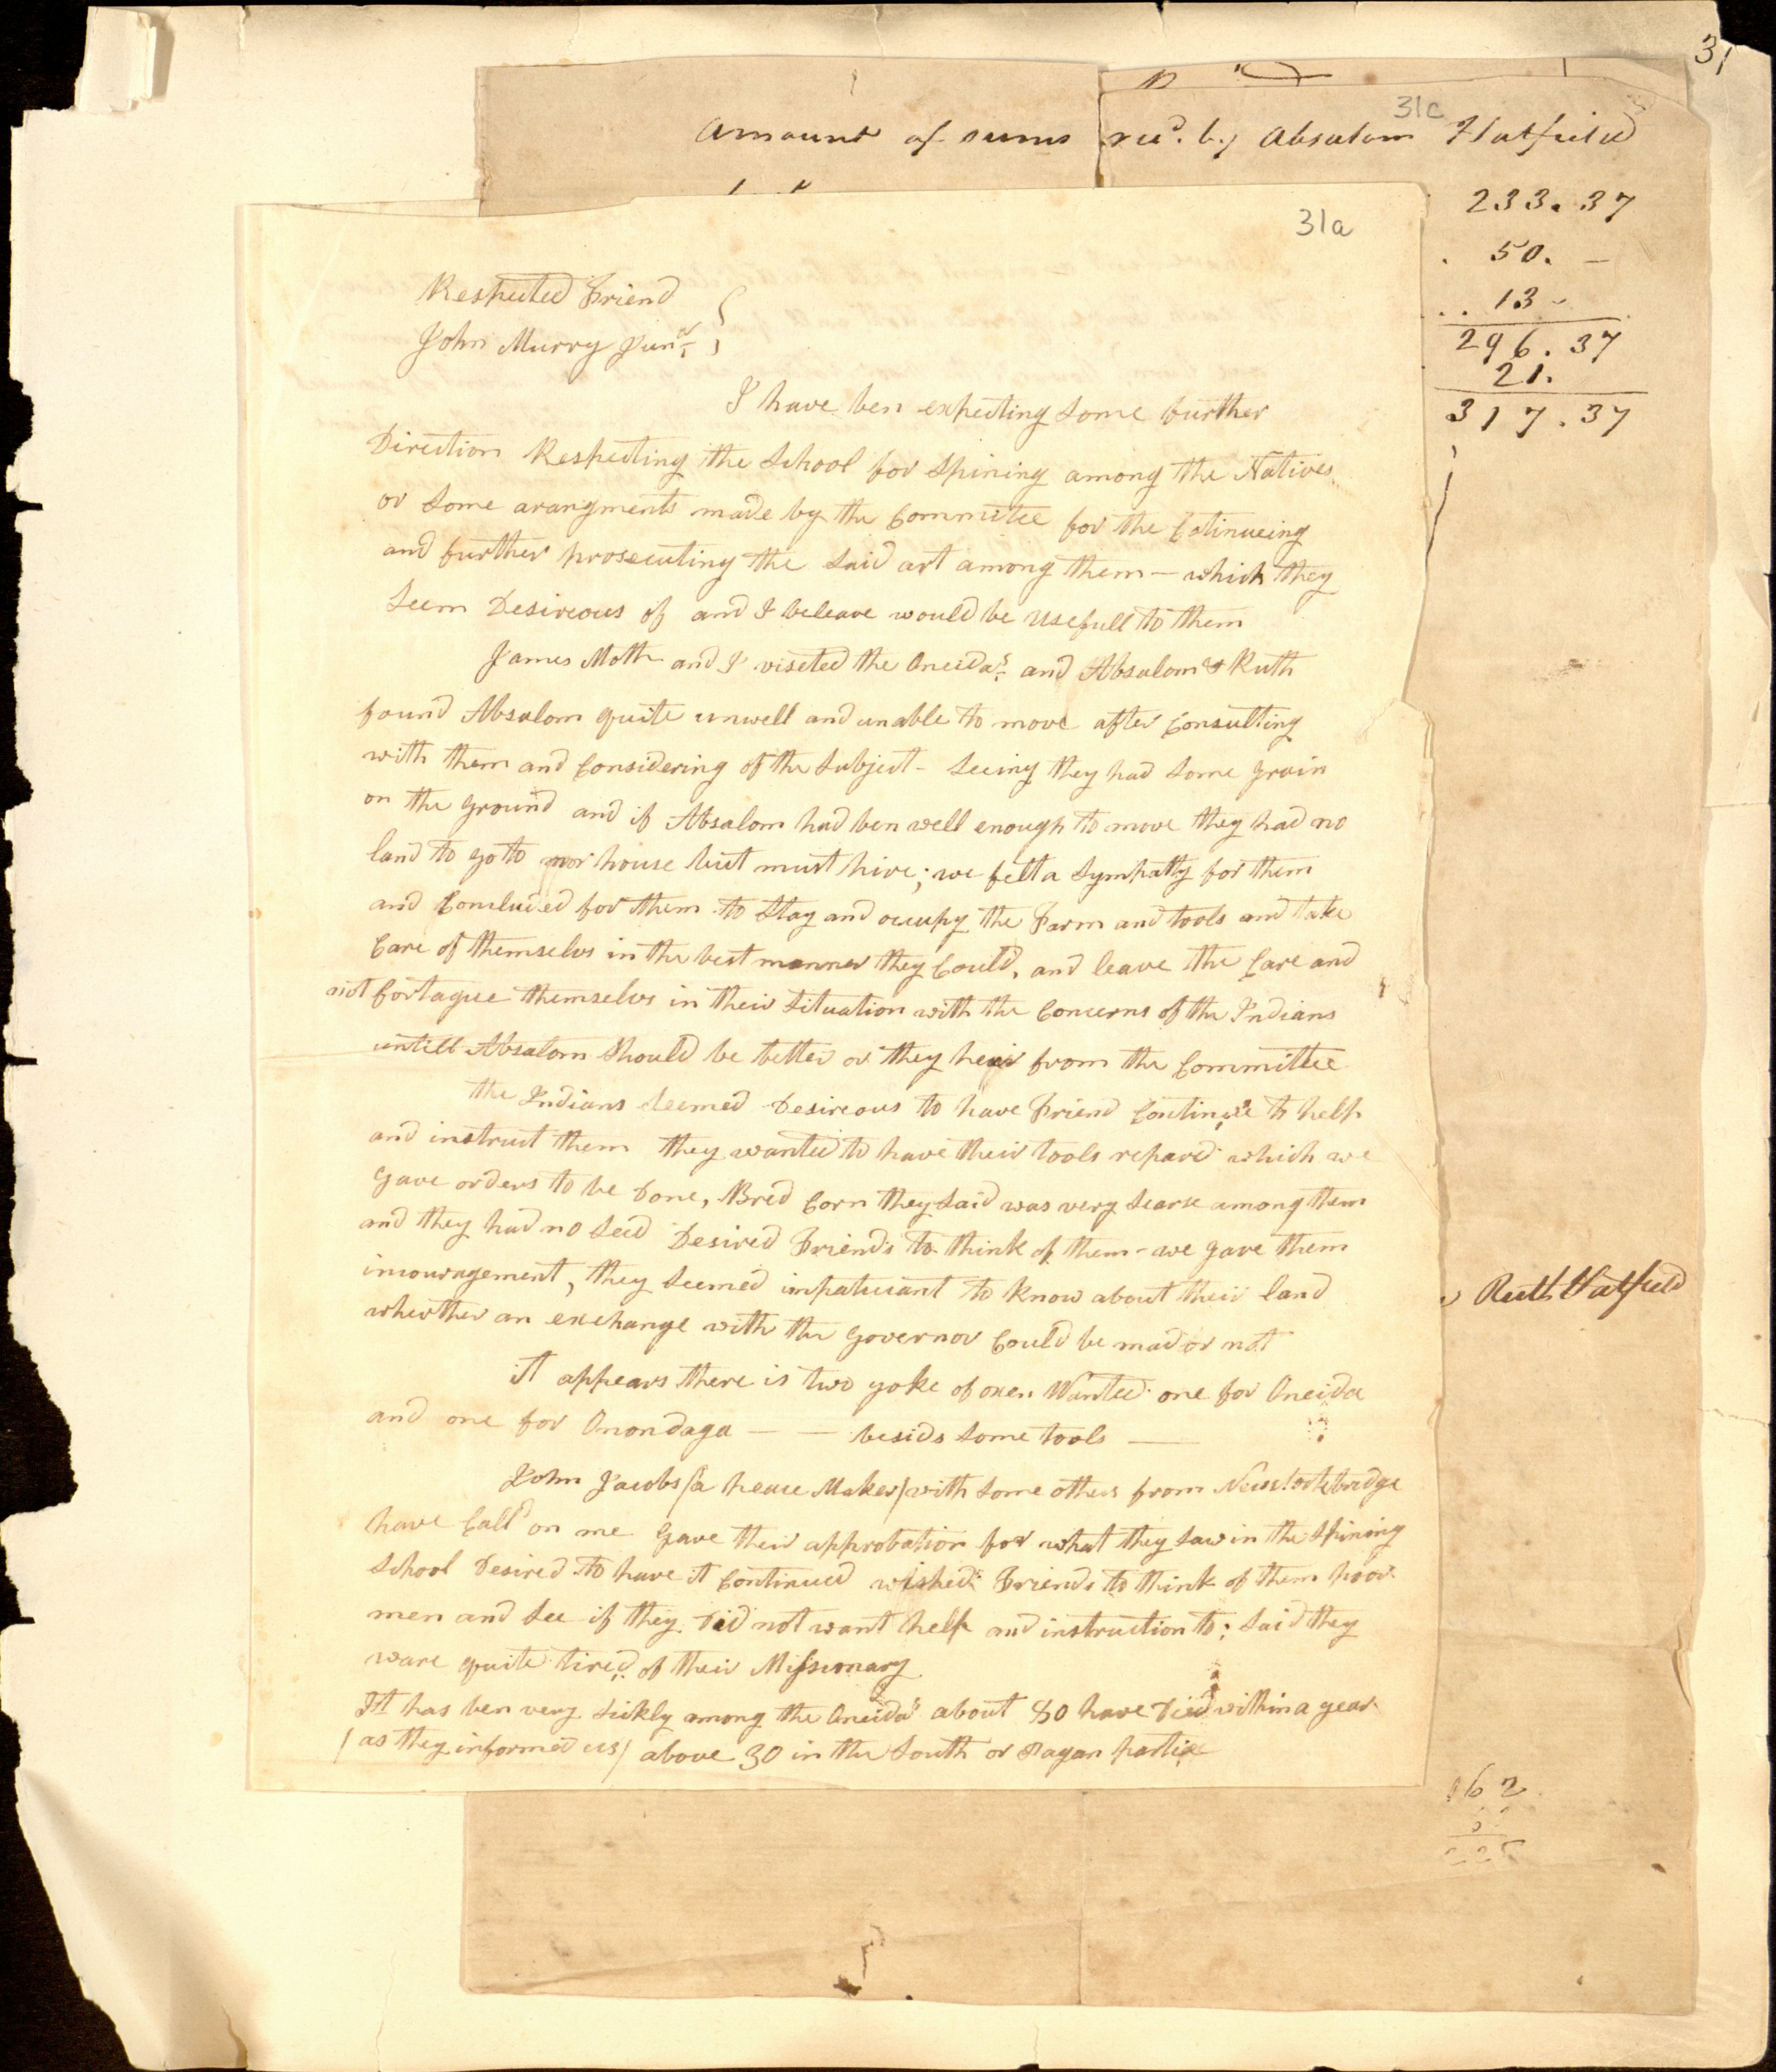 31
31c
Amount of sums recd. by Absalom Hatfield
233.37
50. —
13 -
296.37
21.
317.37
31a
Respected Friend
John Murry Junr
I have ben expecting some further
Direction Respecting the School for Spining among the Natives
or some arangments made by the Committee for the Cotinueing
and further prosecuting the said art among them — which they
seem Desireous of and I beleave would be usefull to them
James Mott and I viseted the Oneidas and Absalom & Ruth
found Absalom quite unwell and unable to move after Consulting
with them and Considering of the Subject - Seeing they had some grain
on the ground and if Absalom had ben well enough to move they had no
land to go to nor house but must hire; we felt a Sympathy for them
and Concluded for them to Stay and occupy the Farm and tools and take
Care of themselvs in the best manner they Could, and leave the Care and
not fortague themselvs in their Situation with the Concerns of the Indians
untill Absalom Should be better or they hear from the Committee
the Indians seemed Desireous to have Friend Continue to help
and instruct them they wanted to have their tools repared which we
gave orders to be Done, Bred Corn they said was very Scarse among them
and they had no Seed Desired Friends to think of them - we gave them
incouragement, they Seemed impatient to know about their land
wheither an exchange with the governor Could be mad or not
it appears there is two yoke of oxen Wanted one for Oneida
and one for Onondaga — — besids some tools —
John Jacobs (a peace Maker) with some others from New Stockbridge
have Calld on me Gave their approbation for what they saw in the Spining
School Desired to have it Continued wished Friends to think of them poor
men and See if they Did not want help and instruction to; said they
ware quite tired of their Missionary
It has ben very Sickly among the Oneidas about 80 have Died within a year
(as they informed us) above 30 in the South or Pagan partie
Ruth Hatfield
162